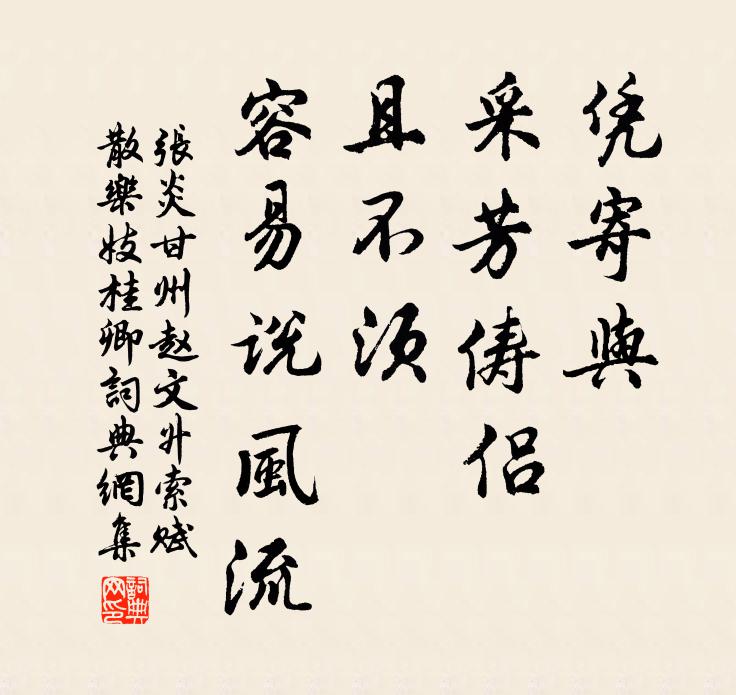 凭寄與
采芳儔侣
且不須
容易説風流
張炎甘州赵文升索赋
散樂妓桂卿詞典網集
詞典網印